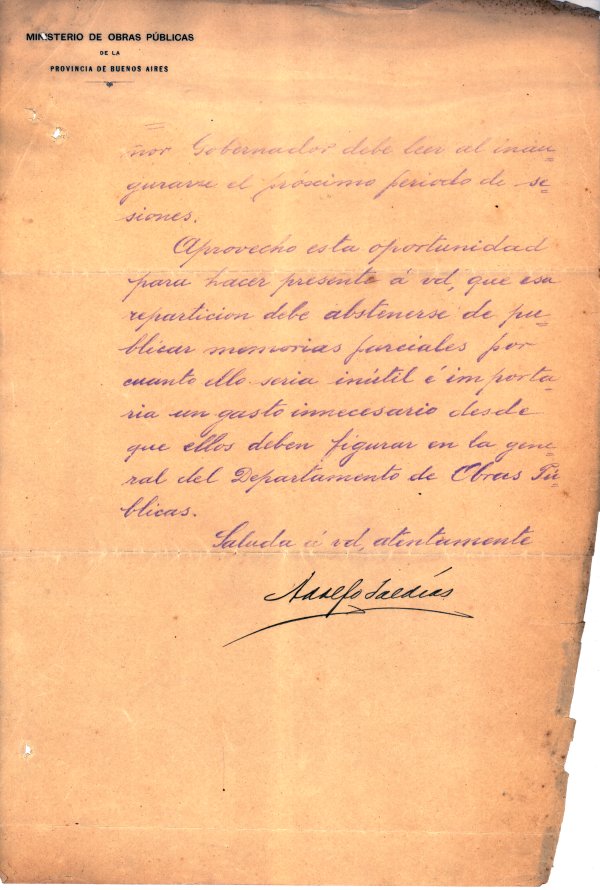 MINISTERIO DE OBRAS PÚBLICAS
DE LA
PROVINCIA DE BUENOS AIRES
ñor Gobernador debe leer al inau=
gurarse el próximo periodo de se=
siones.
Aprovecho esta oportunidad
para hacer presente á vd, que esa
reparticion debe abstenerse de pu=
blicar memorias parciales por
cuanto ello seria inútil é importa=
ria un gasto innecesario desde
que ellos deben figurar en la gene=
ral del Departamento de Obras Pú=
blicas.
Saluda á vd, atentamente
Adolfo Saldías